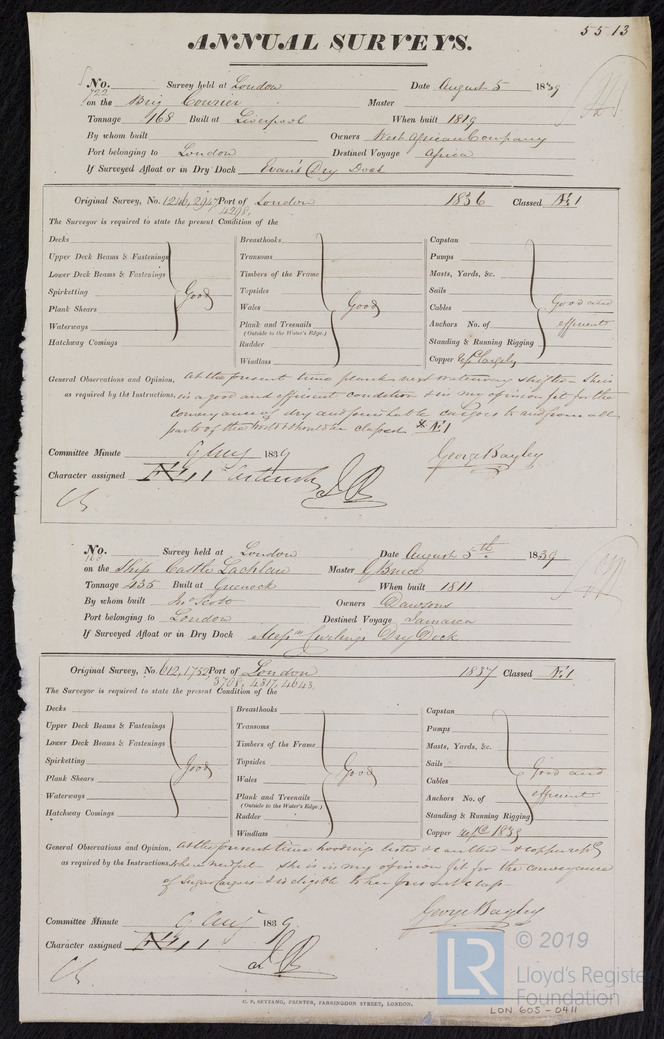 5513
ANNUAL SURVEYS.
No. 722 Survey held at London Date August 5 1839
on the Brig Courier Master
Tonnage 168 Built at Liverpool When built 1819
By whom built Owners West African Company
Port belonging to London Destined Voyage Africa
If Surveyed Afloat or in Dry Dock Evan's Dry Dock
Original Survey, No. 1246, 2947 Port of London 1836 Classed Æ 1
4298,
The Surveyor is required to state the present Condition of the
Decks
Upper Deck Beams & Fastenings
Lower Deck Beams & Fastenings
Spirketting
Plank Shears
Waterways
Hatchway Comings
Good
Breasthooks
Transoms
Timbers of the Frame
Topsides
Wales
Plank and Treenails
(Outside to the Water's Edge.)
Rudder
Windlass
Good
Capstan
Pumps
Masts, Yards, &c.
Sails
Cables
Anchors No. of
Standing & Running Rigging
Copper
Good and
efficient
General Observations and Opinion, At the present time plank next waterway shifted She
as required by the Instructions, is in a good and efficient condition & is in my opinion fit for the
conveyance of dry and perishable cargoes to and from all
parts of the World & should be classed Æ 1
Committee Minute 9 Aug 1839 George Bayley
Character assigned Æ 1
No. Survey held at London Date August 5th 1839
on the Ship Castle Lachlan Master
Tonnage 435 Built at Greenock When built 1811
By whom built Jno Scott Owners Dawsons
Port belonging to London Destined Voyage Jamaica
If Surveyed Afloat or in Dry Dock Messrs Curlings Dry Dock
Original Survey, No. 612, 1752 Port of London 1837 Classed Æ 1
3708, 4317, 4643,
The Surveyor is required to state the present Condition of the
Decks
Upper Deck Beams & Fastenings
Lower Deck Beams & Fastenings
Spirketting
Plank Shears
Waterways
Hatchway Comings
Good
Breasthooks
Transoms
Timbers of the Frame
Topsides
Wales
Plank and Treenails
(Outside to the Water's Edge.)
Rudder
Windlass
Good
Capstan
Pumps
Masts, Yards, &c.
Sails
Cables
Anchors No. of
Standing & Running Rigging
Copper 1839
Good and
efficient
General Observations and Opinion, At the present time hoodings listed & caulked & copper repd
as required by the Instructions, where needful She is in my opinion fit for the conveyance
of Sugar Cargoes & is eligible to her present class
Committee Minute 9 Aug 1839. George Bayley
Character assigned Æ 1
C. F. SEYFANG, PRINTER, FARRINGDON STREET, LONDON.
LR © 2019
Lloyd's Register
Foundation
LON 605-0411